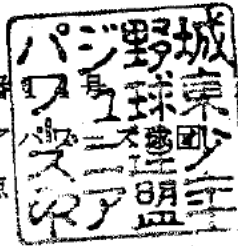 城東少年
野球連盟
ジュニア
パワーズ